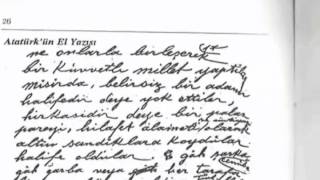 26
Atatürk'ün El Yazısı
ne onlarla birleşerek
bir kuvvetli millet yaptılar
mısırda, belirsiz bir adam
halifedir deye yok ettiler,
hırkasidir deye bir palas
pareyi, hilafet alameti olarak
altın sandıklara koydular
halife oldular. gâh şarka
gâh garba veya gâh her tarafa